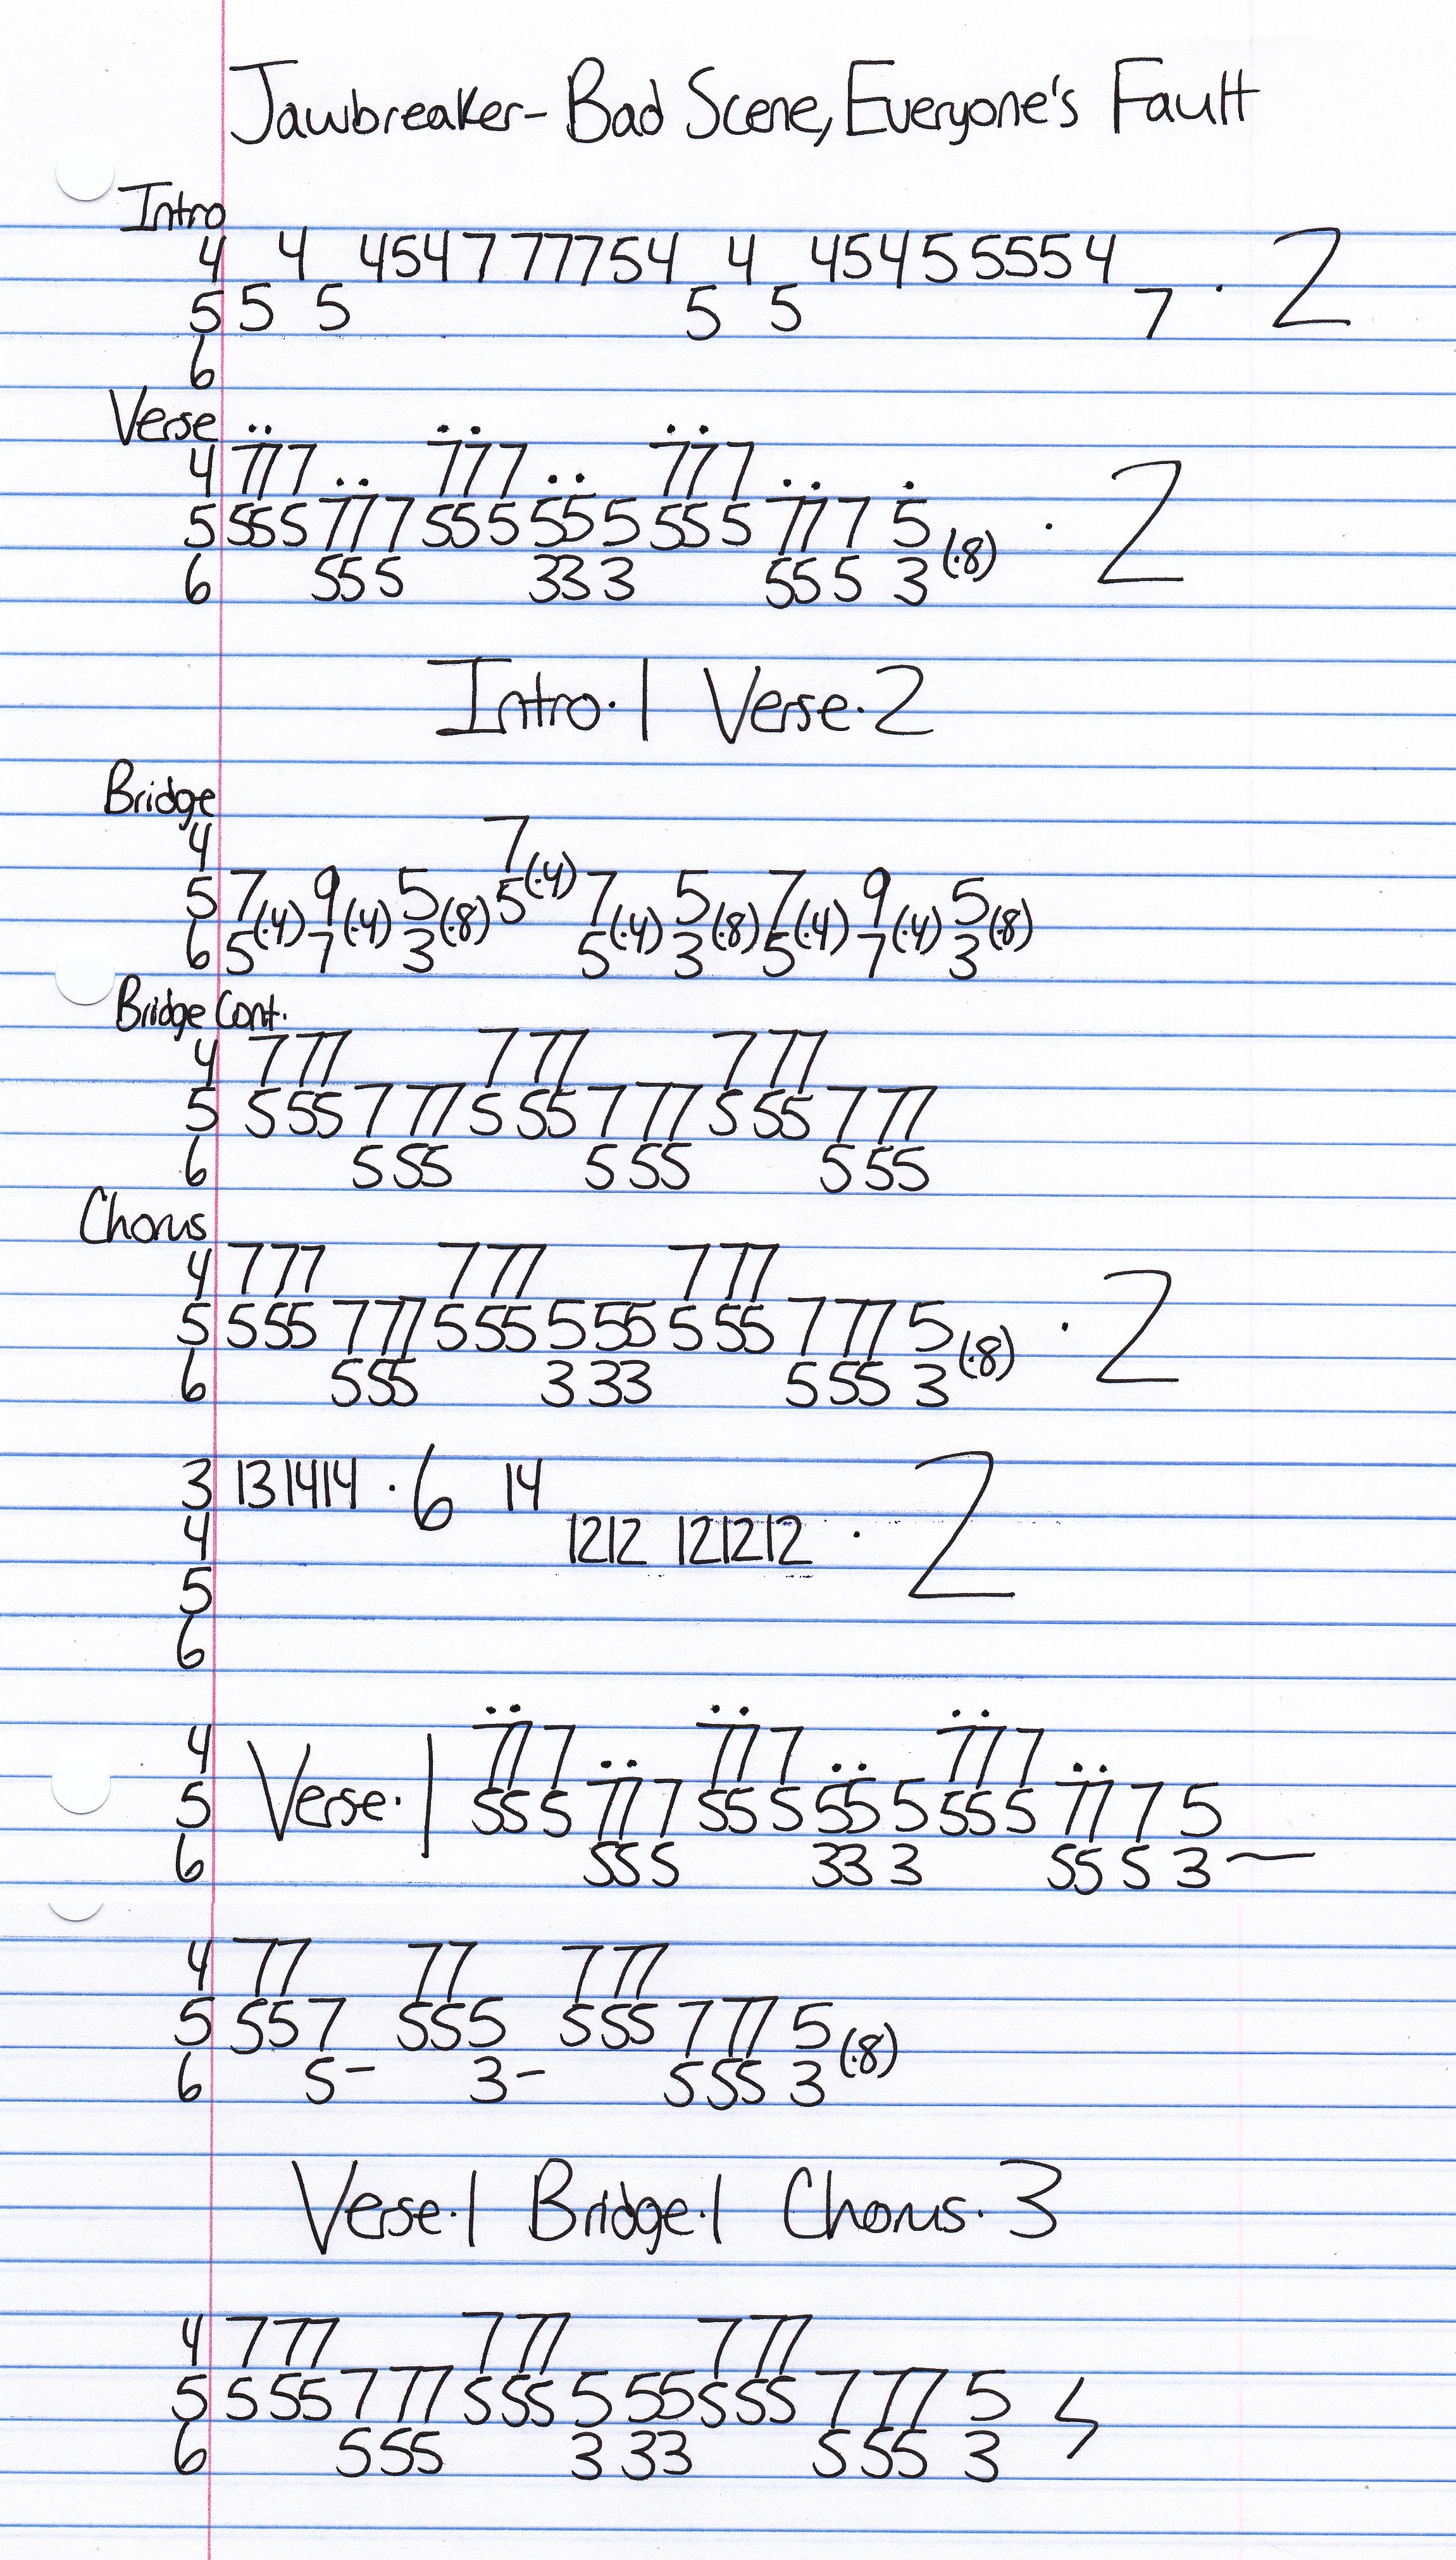 Jawbreaker- Bad Scene, Everyone's Fault
Intro
4 4 4547 777754 4 45455554 · 2
5 5 5 5 5 7
6
Verse
4 777 777 777
5 555 777 555 555 555 777 5 (·8) · 2
6 555 333 555 3
Intro·1 Verse·2
Bridge
4 7(·4)
5 7(·4) 9(·4) 5(·8) 5 7(·4) 5(·8) 7(·4) 9(·4) 5(·8)
6 5 7 3 5 3 5 7 3
Bridge Cont.
4 777 777 777
5 555 777 555 777 555 777
6 555 555 555
Chorus
4 777 777 777
5 555 777 555 555 555 777 5 (·8) · 2
6 555 333 555 3
3 131414 · 6 14
4 1212 121212 · 2
5
6
4 777 777 777
5 Verse·1 555 777 555 555 555 777 5
6 555 333 555 3—
4 77 77 777
5 557 555 555 777 5 (·8)
6 5- 3- 555 3
Verse·1 Bridge·1 Chorus·3
4 777 777 777
5 555 777 555 555 555 777 5
6 555 333 555 3